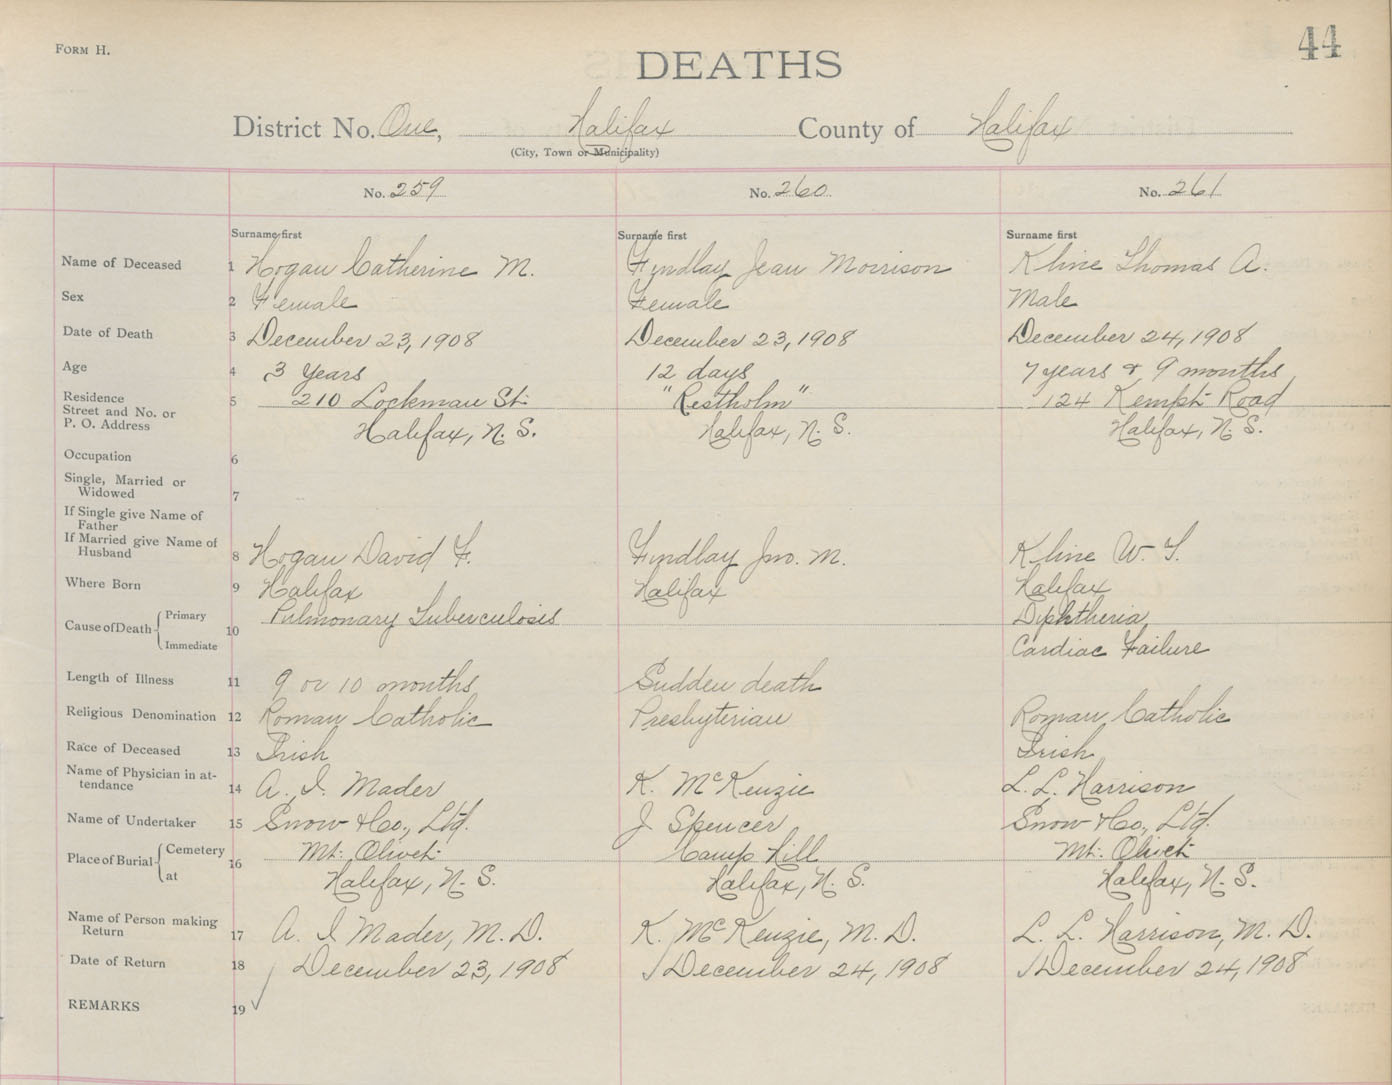 FORM H.
44
DEATHS
District No. One, Halifax County of Halifax
(City, Town or Municipality)
No. 259 No. 260 No. 261
Surname first Surname first Surname first
Name of Deceased 1 Hogan Catherine M. Findlay Jean Morrison Kline Thomas A.
Sex 2 Female Female Male
Date of Death 3 December 23, 1908 December 23, 1908 December 24, 1908
Age 4 3 Years 12 days 7 years & 9 months
Residence 5 210 Lockman St. "Restholm" 124 Kempt Road
Street and No. or
P. O. Address Halifax, N. S. Halifax, N. S. Halifax, N. S.
Occupation 6
Single, Married or
Widowed 7
If Single give Name of
Father
If Married give Name of
Husband 8 Hogan David F. Findlay Jno. M. Kline W. T.
Where Born 9 Halifax Halifax Halifax
Cause of Death Primary Pulmonary Tuberculosis Diphtheria,
10 Immediate Cardiac Failure
Length of Illness 11 9 or 10 months Sudden death
Religious Denomination 12 Roman Catholic Presbyterian Roman Catholic
Race of Deceased 13 Irish Irish
Name of Physician in at-
tendance 14 A. I. Mader K. McKenzie L. L. Harrison
Name of Undertaker 15 Snow & Co., Ltd. J Spencer Snow & Co., Ltd.
Place of Burial Cemetery 16 Mt. Olivet Camp Hill Mt. Olivet
at Halifax, N. S. Halifax, N. S. Halifax, N. S.
Name of Person making
Return 17 A. I Mader, M. D. K. McKenzie, M. D. L. L. Harrison, M. D.
Date of Return 18 December 23, 1908 December 24, 1908 December 24, 1908
REMARKS 19